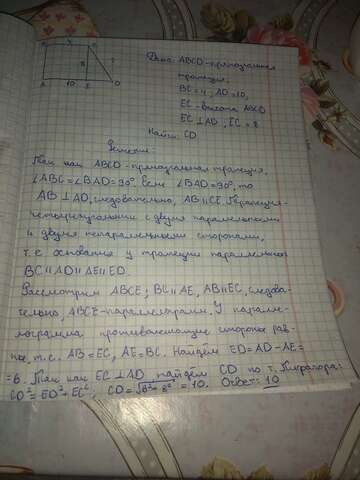 B 4 C
8
A 10 E D
Дано: ABCD-прямоугольная
трапеция,
BC=4, AD=10,
EC-высота ABCD
EC⊥AD, EC=8
Найти: CD
Решение:
Так как ABCD-прямоугольная трапеция,
∠ABC=∠BAD=90°. Если ∠BAD=90°, то
AB⊥AD, следовательно, AB∥CE. Трапеция-
четырехугольник с двумя параллельными
и двумя непараллельными сторонами,
т.е. основания у трапеции параллельны
BC∥AD∥AE∥ED.
Рассмотрим ABCE; BC∥AE, AB∥EC, следова-
тельно, ABCE-параллелограмм. У паралле-
лограмма противолежащие стороны рав-
ны, т.е. AB=EC, AE=BC. Найдём ED=AD-AE=
=6. Так как EC⊥AD найдём CD по т. Пифагора:
CD²=ED²+EC²; CD=√6²+8² = 10. Ответ: 10